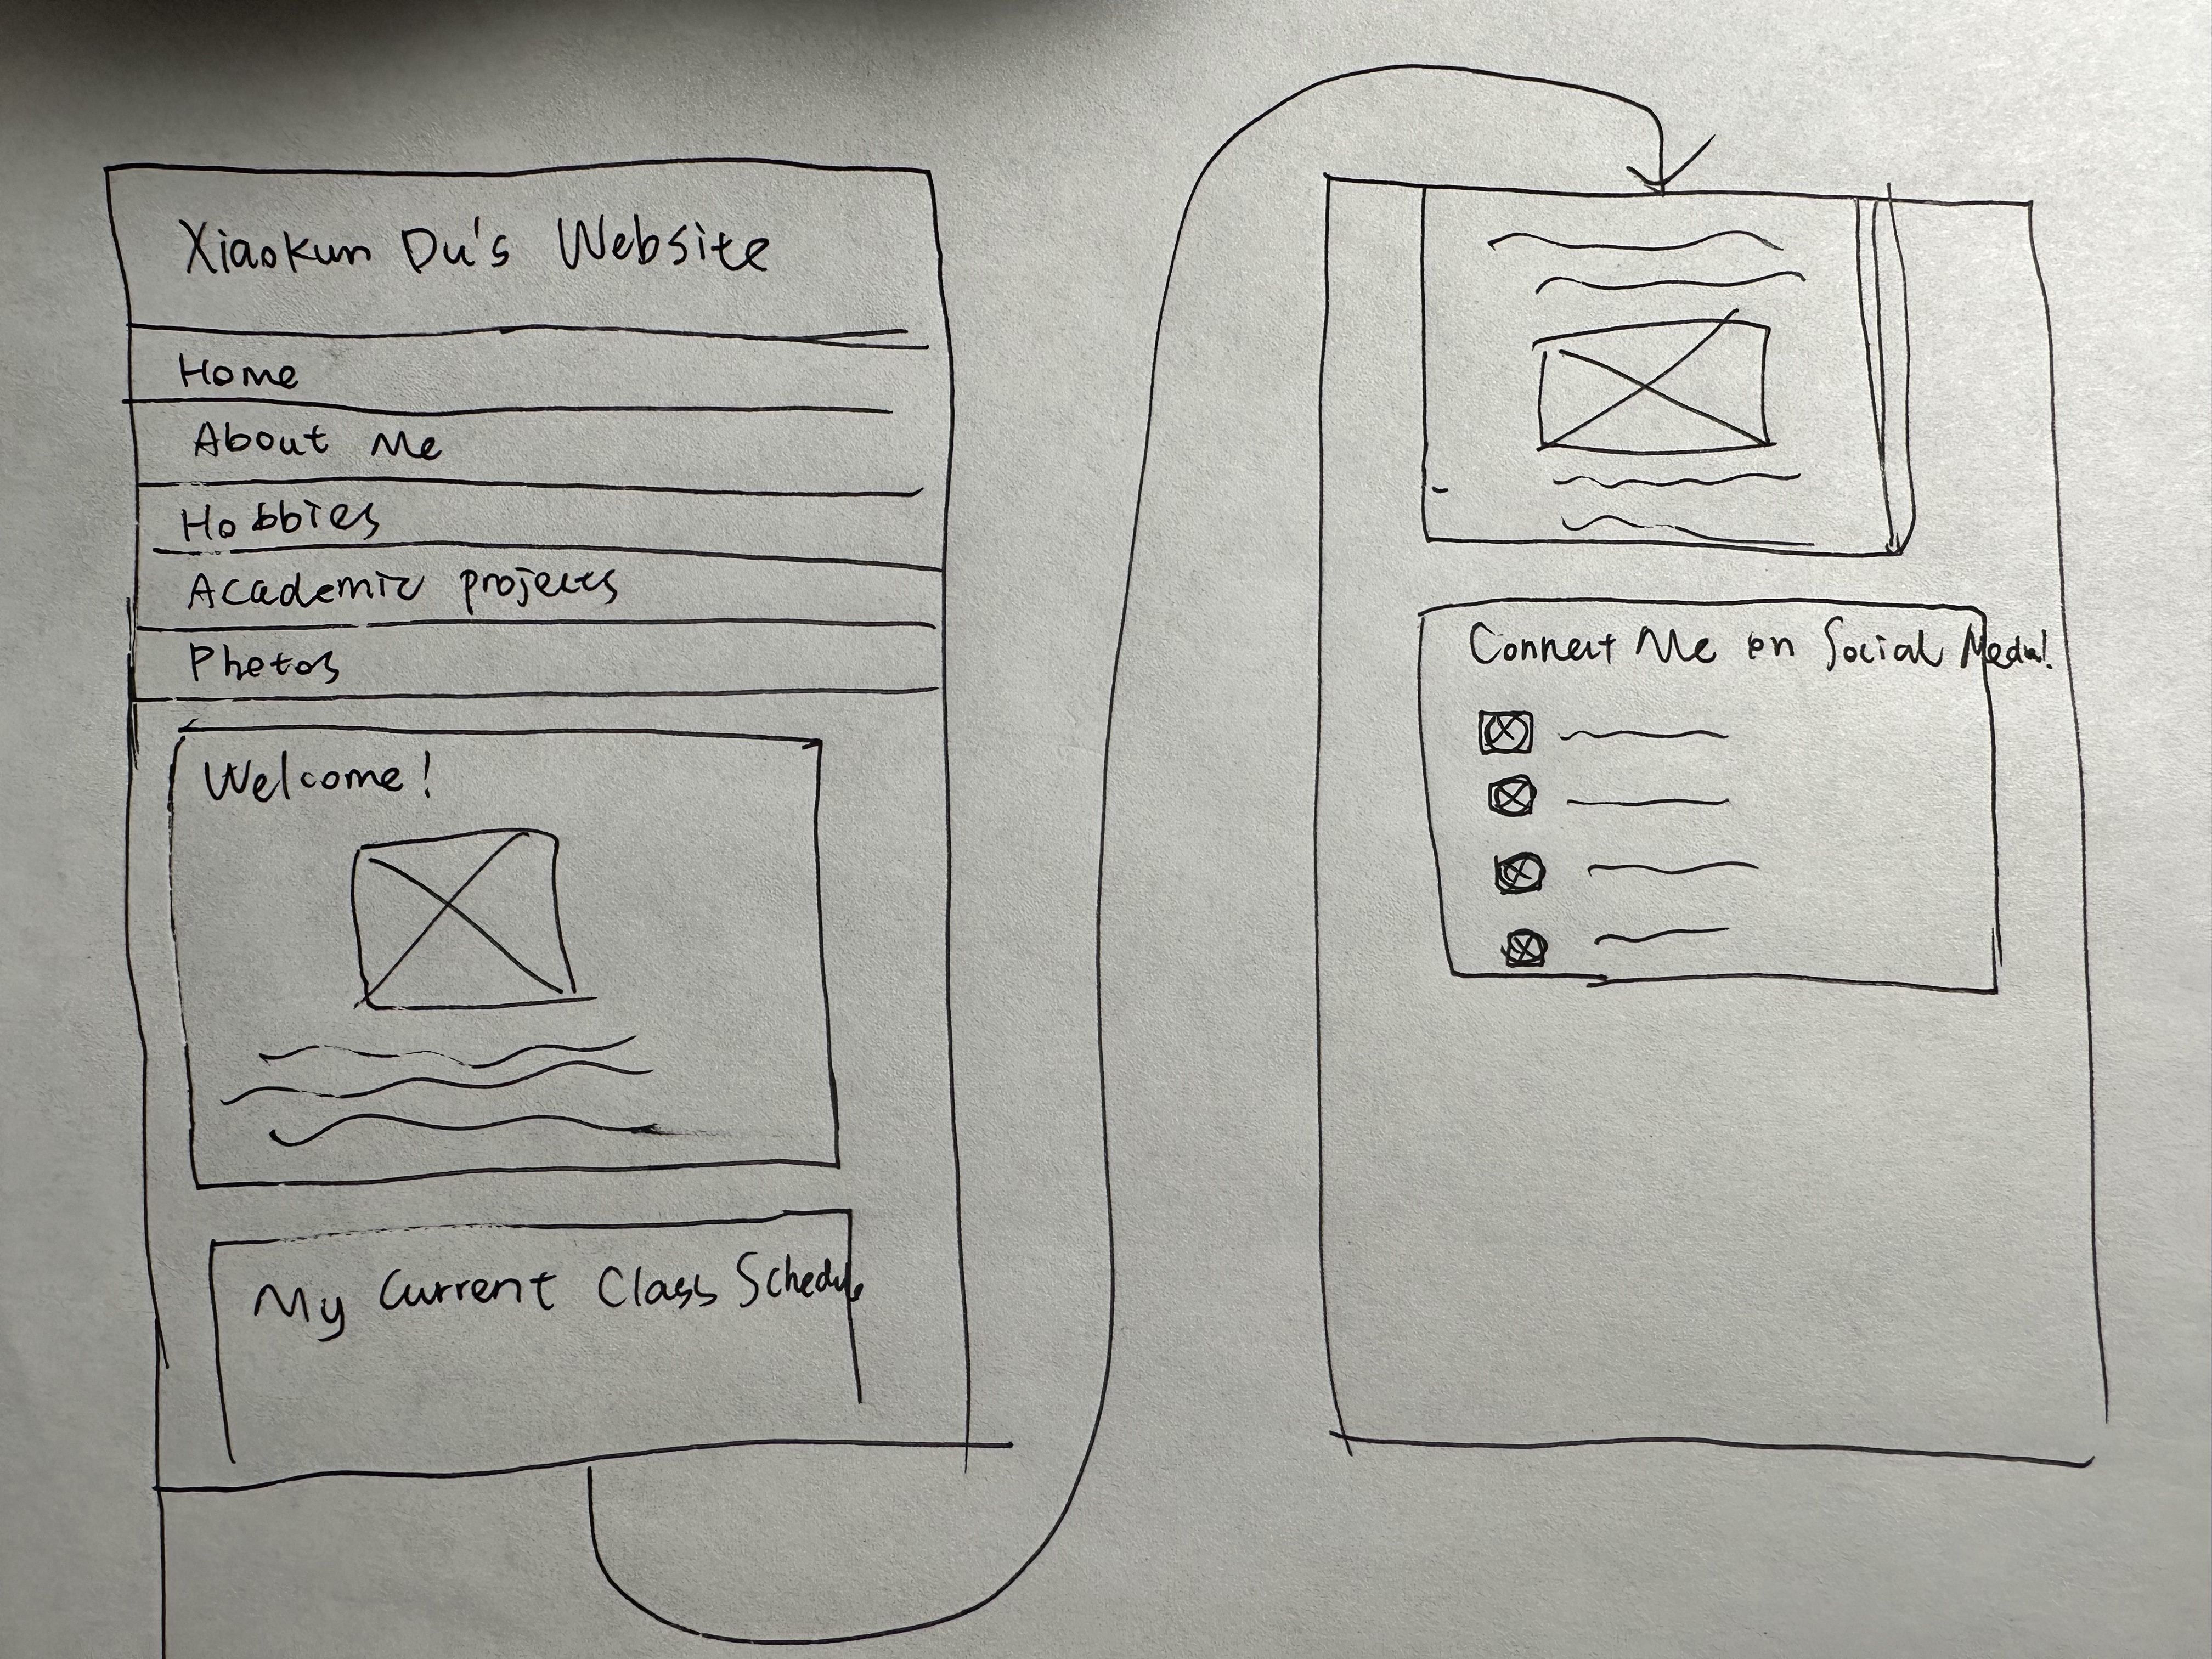 Xiaokun Du's Website
Home
About Me
Hobbies
Academic projects
Photos
Welcome!
My Current Class Schedule
Connect Me on Social Media!